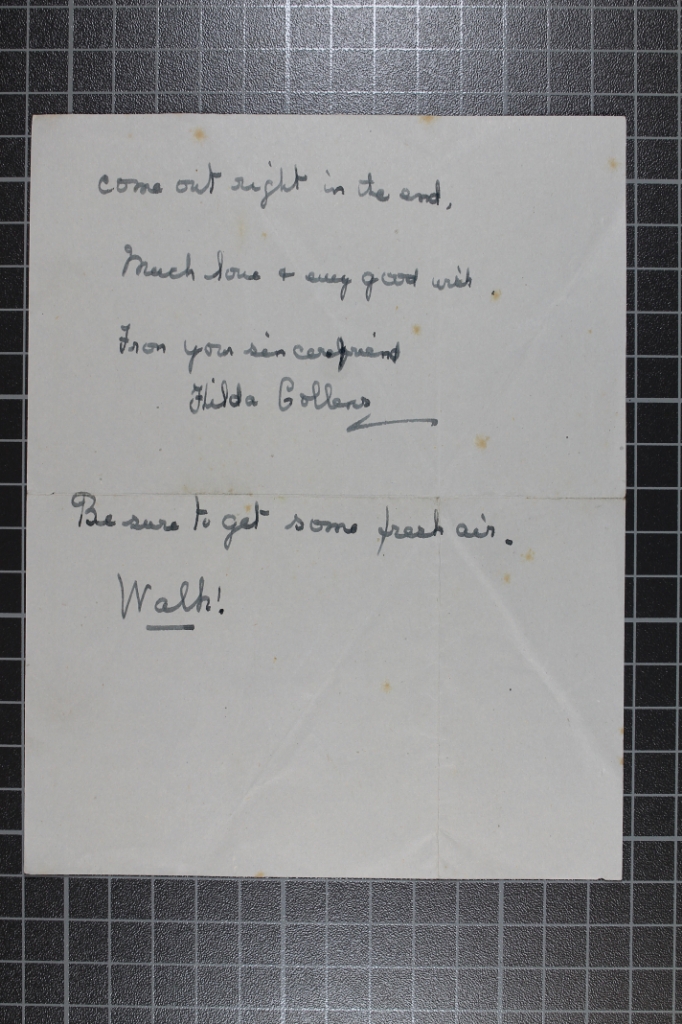 come out right in the end,
Much love & every good wish.
From your sincere friend
Hilda Collens
Be sure to get some fresh air.
Walk!